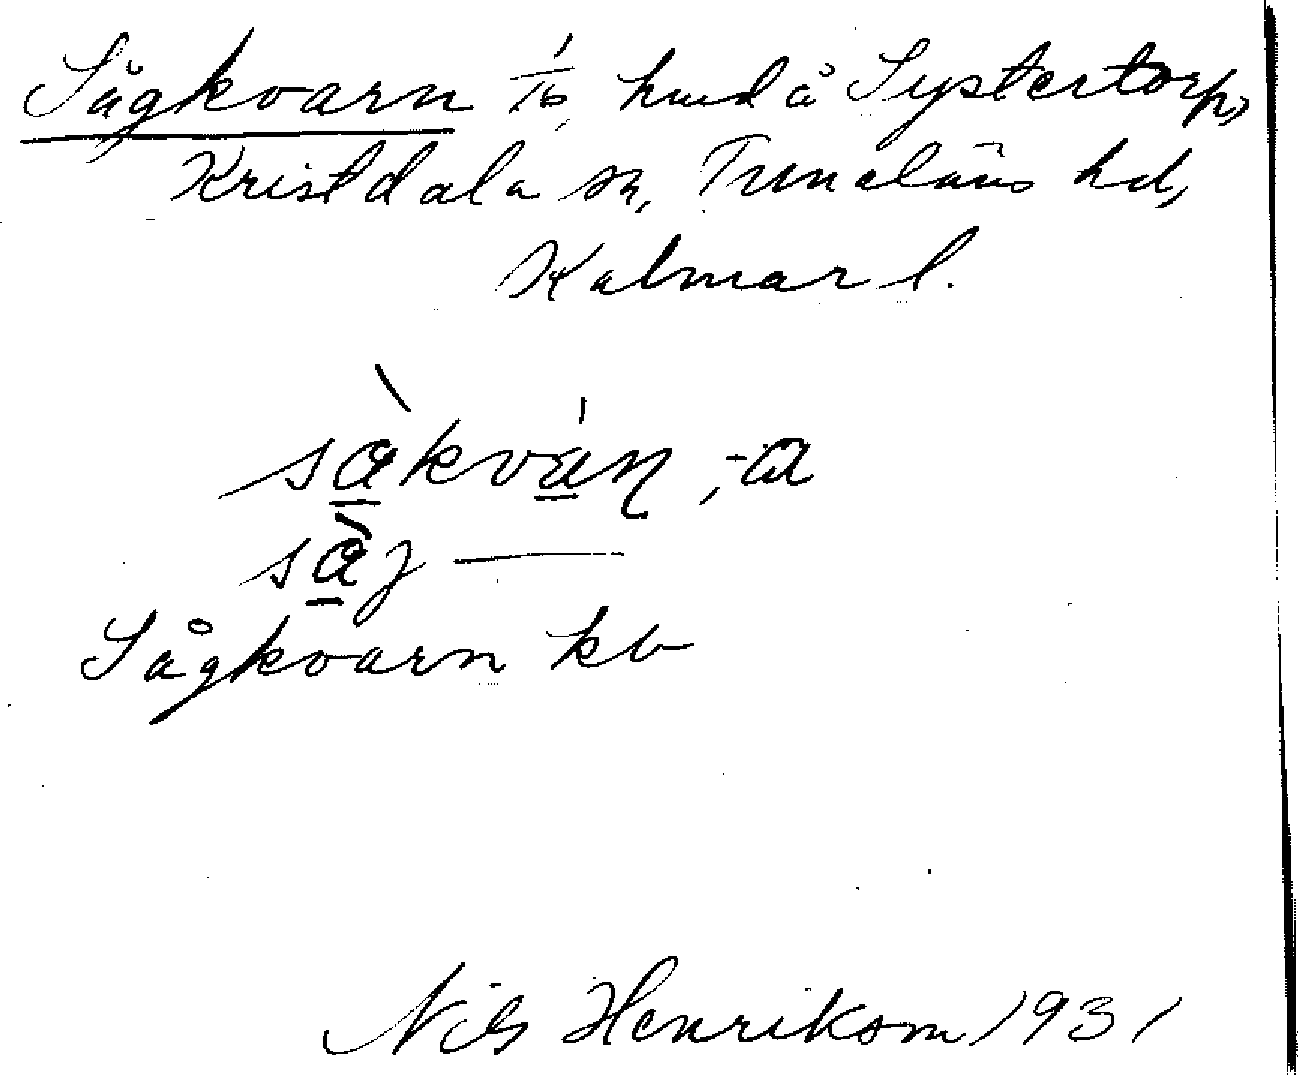 Sågkvarn 1/16 hmd å Systertorp,
Kristdala sn, Tunaläns hd,
Kalmar l.
sàkván, -a
sàg ———
Sågkvarn kb
Nils Henrikson 1931